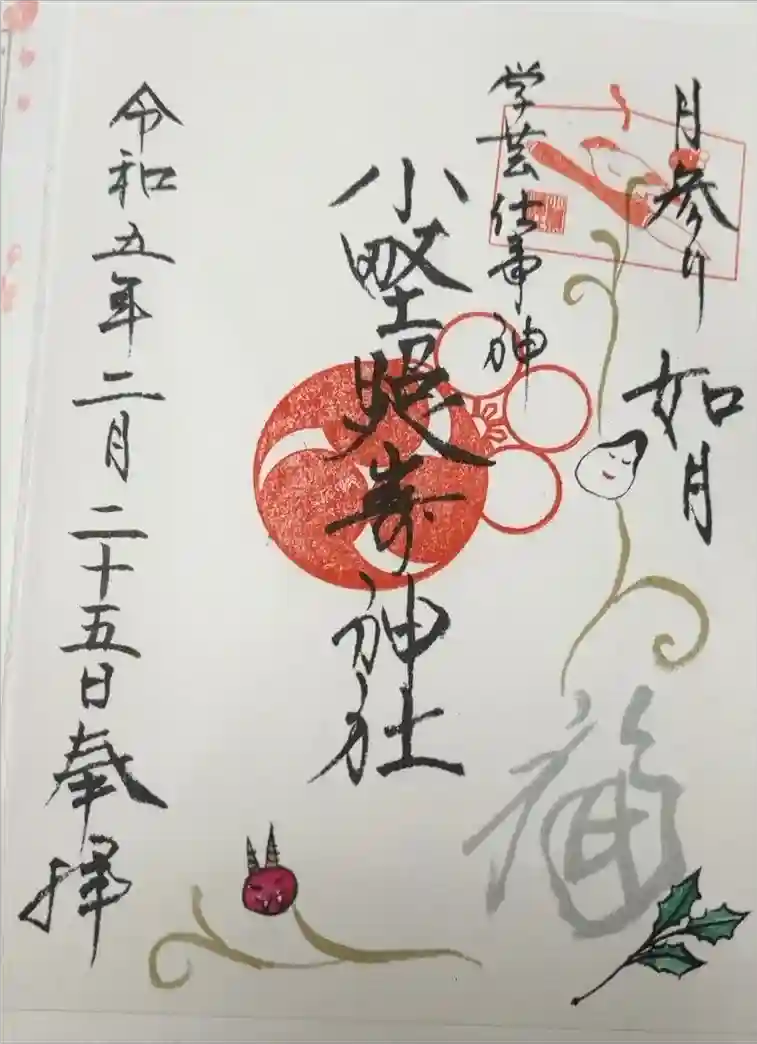 月参り 如月
学芸仕事神
小野照嵜神社
福
令和五年二月二十五日奉拝